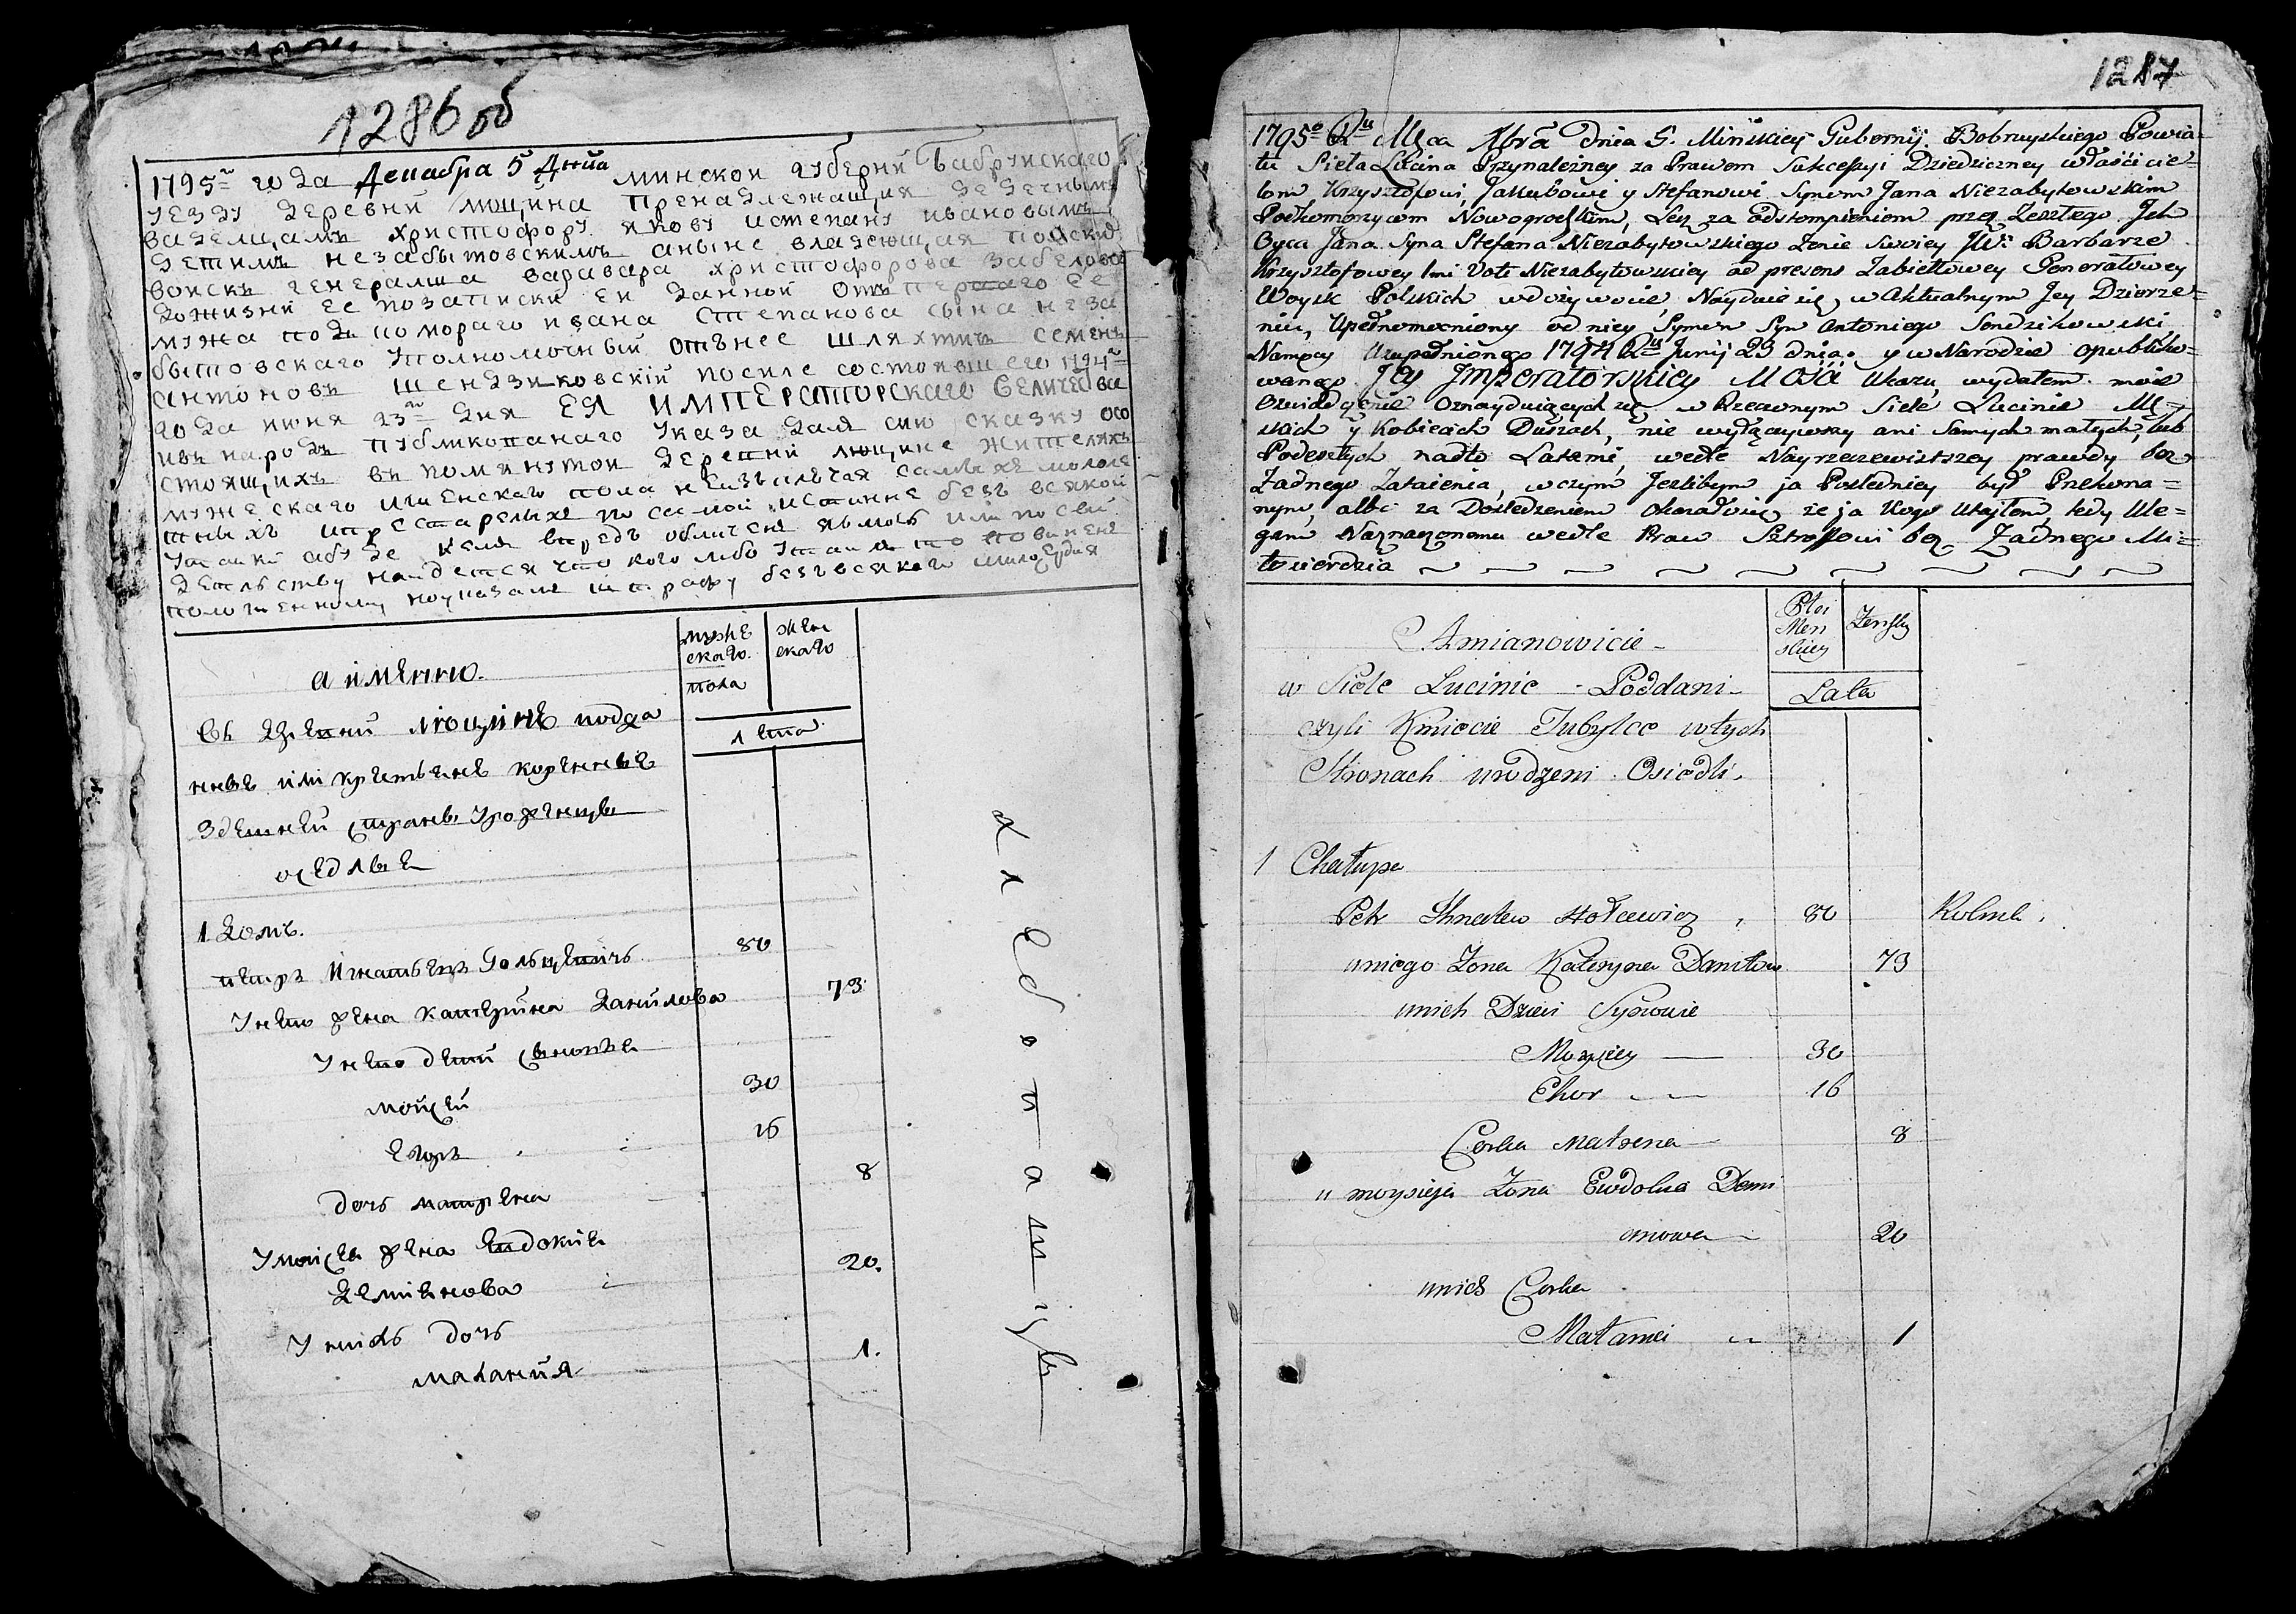 1286 об
1795 года Декабра 5 Днйа минской губерний Бабруйского
уезду деревни лющина принадлежащия
Христофору якову истепану ивановымъ
детямъ незабытовскимъ аныне владеющая
войскъ генералша варавара христофорова забелова
ее позаписки ей данной отъ ее
мужа ивана степанова сына неза
бытовского уполномочный отънее шляхтич семенъ
антоновъ шендзиковский посиле состоявшегося 1794
года июня 23 дня ЕЯ ИМПЕРаТОРСКаГо ВЕличества
ивъ народъ публикованаго указа далъ сию сказку осо
стоящихъ въ помянутой деревни лющине жителяхъ
мужескаго иженскаго пола
по самой истинне безъ всякой
утайки
найдется что кого либо утаилъ то повиненъ
положенному поуказамъ штрафу безъ всякаго милосердия
а имянно.
муже
скаго
пола
жен
скаго
лета
въ деревни лющине подда
нные или крестьяне коренные
здешней страны уроженцы
оседлые
1 домъ.
петръ Игнатьевъ Гольцевичъ 80
У него жена катерина данилова 73
У него дети сыновья
мойсей 30
Егоръ 16
дочь матрена 8
У моисея жена Евдокия
демянова 20.
У нихъ дочь
маланийя 1.
хлебопашцы
1287
1795o Ru Mca Xbrã dnia 5. Minskiey Gubernij. Bobruyskiego Powia-
tu Sieła Lucina Przynależney za Prawem Sukcessyi Dziedziczney właścicie-
lom Krzysztofowi, Jakubowi y Stefanowi Synom Jana Niezabytowskim
Podkomorzycom Nowogrodzkim, Lecz za odstompieniem przez Zeszłego Jch
Oyca Jana Syna Stefana Niezabytowskiego Zonie Swoiey JW. Barbarze
Krzysztofowey 1mi Voti Niezabytowskiey ad presens Zabiełłowey Generałowey
Woysk Polskich wdożywocie, Nayduie się w Aktualnym Jey Dzierże-
niu, Upełnomocniony od niey Symon Syn Antoniego Sendzikowski
Namocy Uzupełnionego 1794 Ru Junij 23 dnia. y w Narodzie opubliko-
wanego Jey Jmperatorskiey Mośći Ukazu, wydałem moie
Oswiadczenie Oznayduiących się w Rzeczonym Siele Lucinie Mę-
skich y Kobiecich Duszach, nie wyłączywszy ani Samych małych, lub
Podeszłych nadto Latami, wedle Nayrzeczewistszey prawdy bez
Zadnego Zataienia, w czym Jeślibym ja Posledniey był Prekona-
nym, albo za Dosledzeniem okazałoś się że ja Kogo Utaiłem, tedy Ule-
gam Naznaczonemu wedle Praw Sztraffowi bez Zadnego Mi-
łosierdzia
Amianowicie -
Płci
Men
skiey
Zenskey
Lata
w Siele Lucinie - Poddani -
czyli Kmiecie Tubylce wtych
Stronach urodzeni Osiedli -
1 Chałupa
Petr Ihnatew Holcewicz 80 Rolnik
uniego Zona Kateryna Daniłow 73
unich Dzieci Synowie
Moysiey — 30
Ehor — 16
Corka Matrena — 8
u moysieja Zona Ewdokia Demi
anowa 20
unich Corka
Małania 1